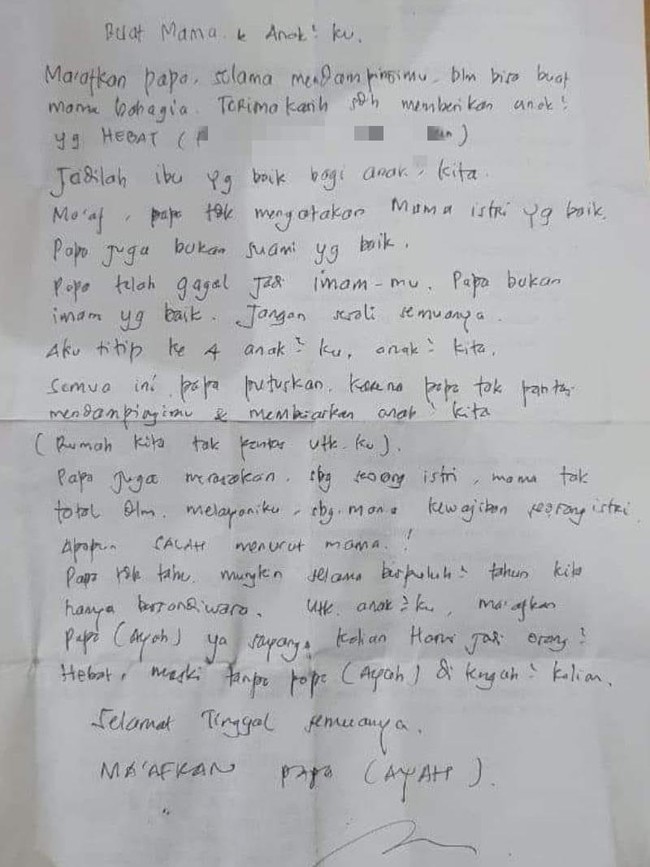 Buat Mama & Anak² ku.
Ma'afkan papa, selama mendampingimu, blm bisa buat
mama bahagia. Terima kasih sdh memberikan anak²
yg HEBAT ( )
Jadilah ibu yg baik bagi anak² kita.
Ma'af, papa tdk mengatakan Mama istri yg baik.
Papa juga bukan suami yg baik.
Papa telah gagal jadi imam-mu. Papa bukan
imam yg baik. Jangan semuanya.
Aku titip ke 4 anak² ku, anak² kita.
Semua ini papa putuskan. Karena papa tak pantas
mendampingimu & membiarkan anak² kita
(Rumah kita tak pantas utk. ku).
Papa juga merasakan, sbg seorang istri, mama tak
total dlm. melayaniku, sbg. mana kewajiban seorang istri.
Apapun SALAH menurut mama.!
Papa tdk tahu, mungkin selama berpuluh² tahun kita
hanya bersandiwara. Utk. anak² ku, ma'afkan
Papa (Ayah) ya sayang. Kalian Harus jadi orang²
Hebat, meski tanpa papa (Ayah) di tengah² kalian.
Selamat Tinggal semuanya.
MA'AFKAN papa (AYAH).